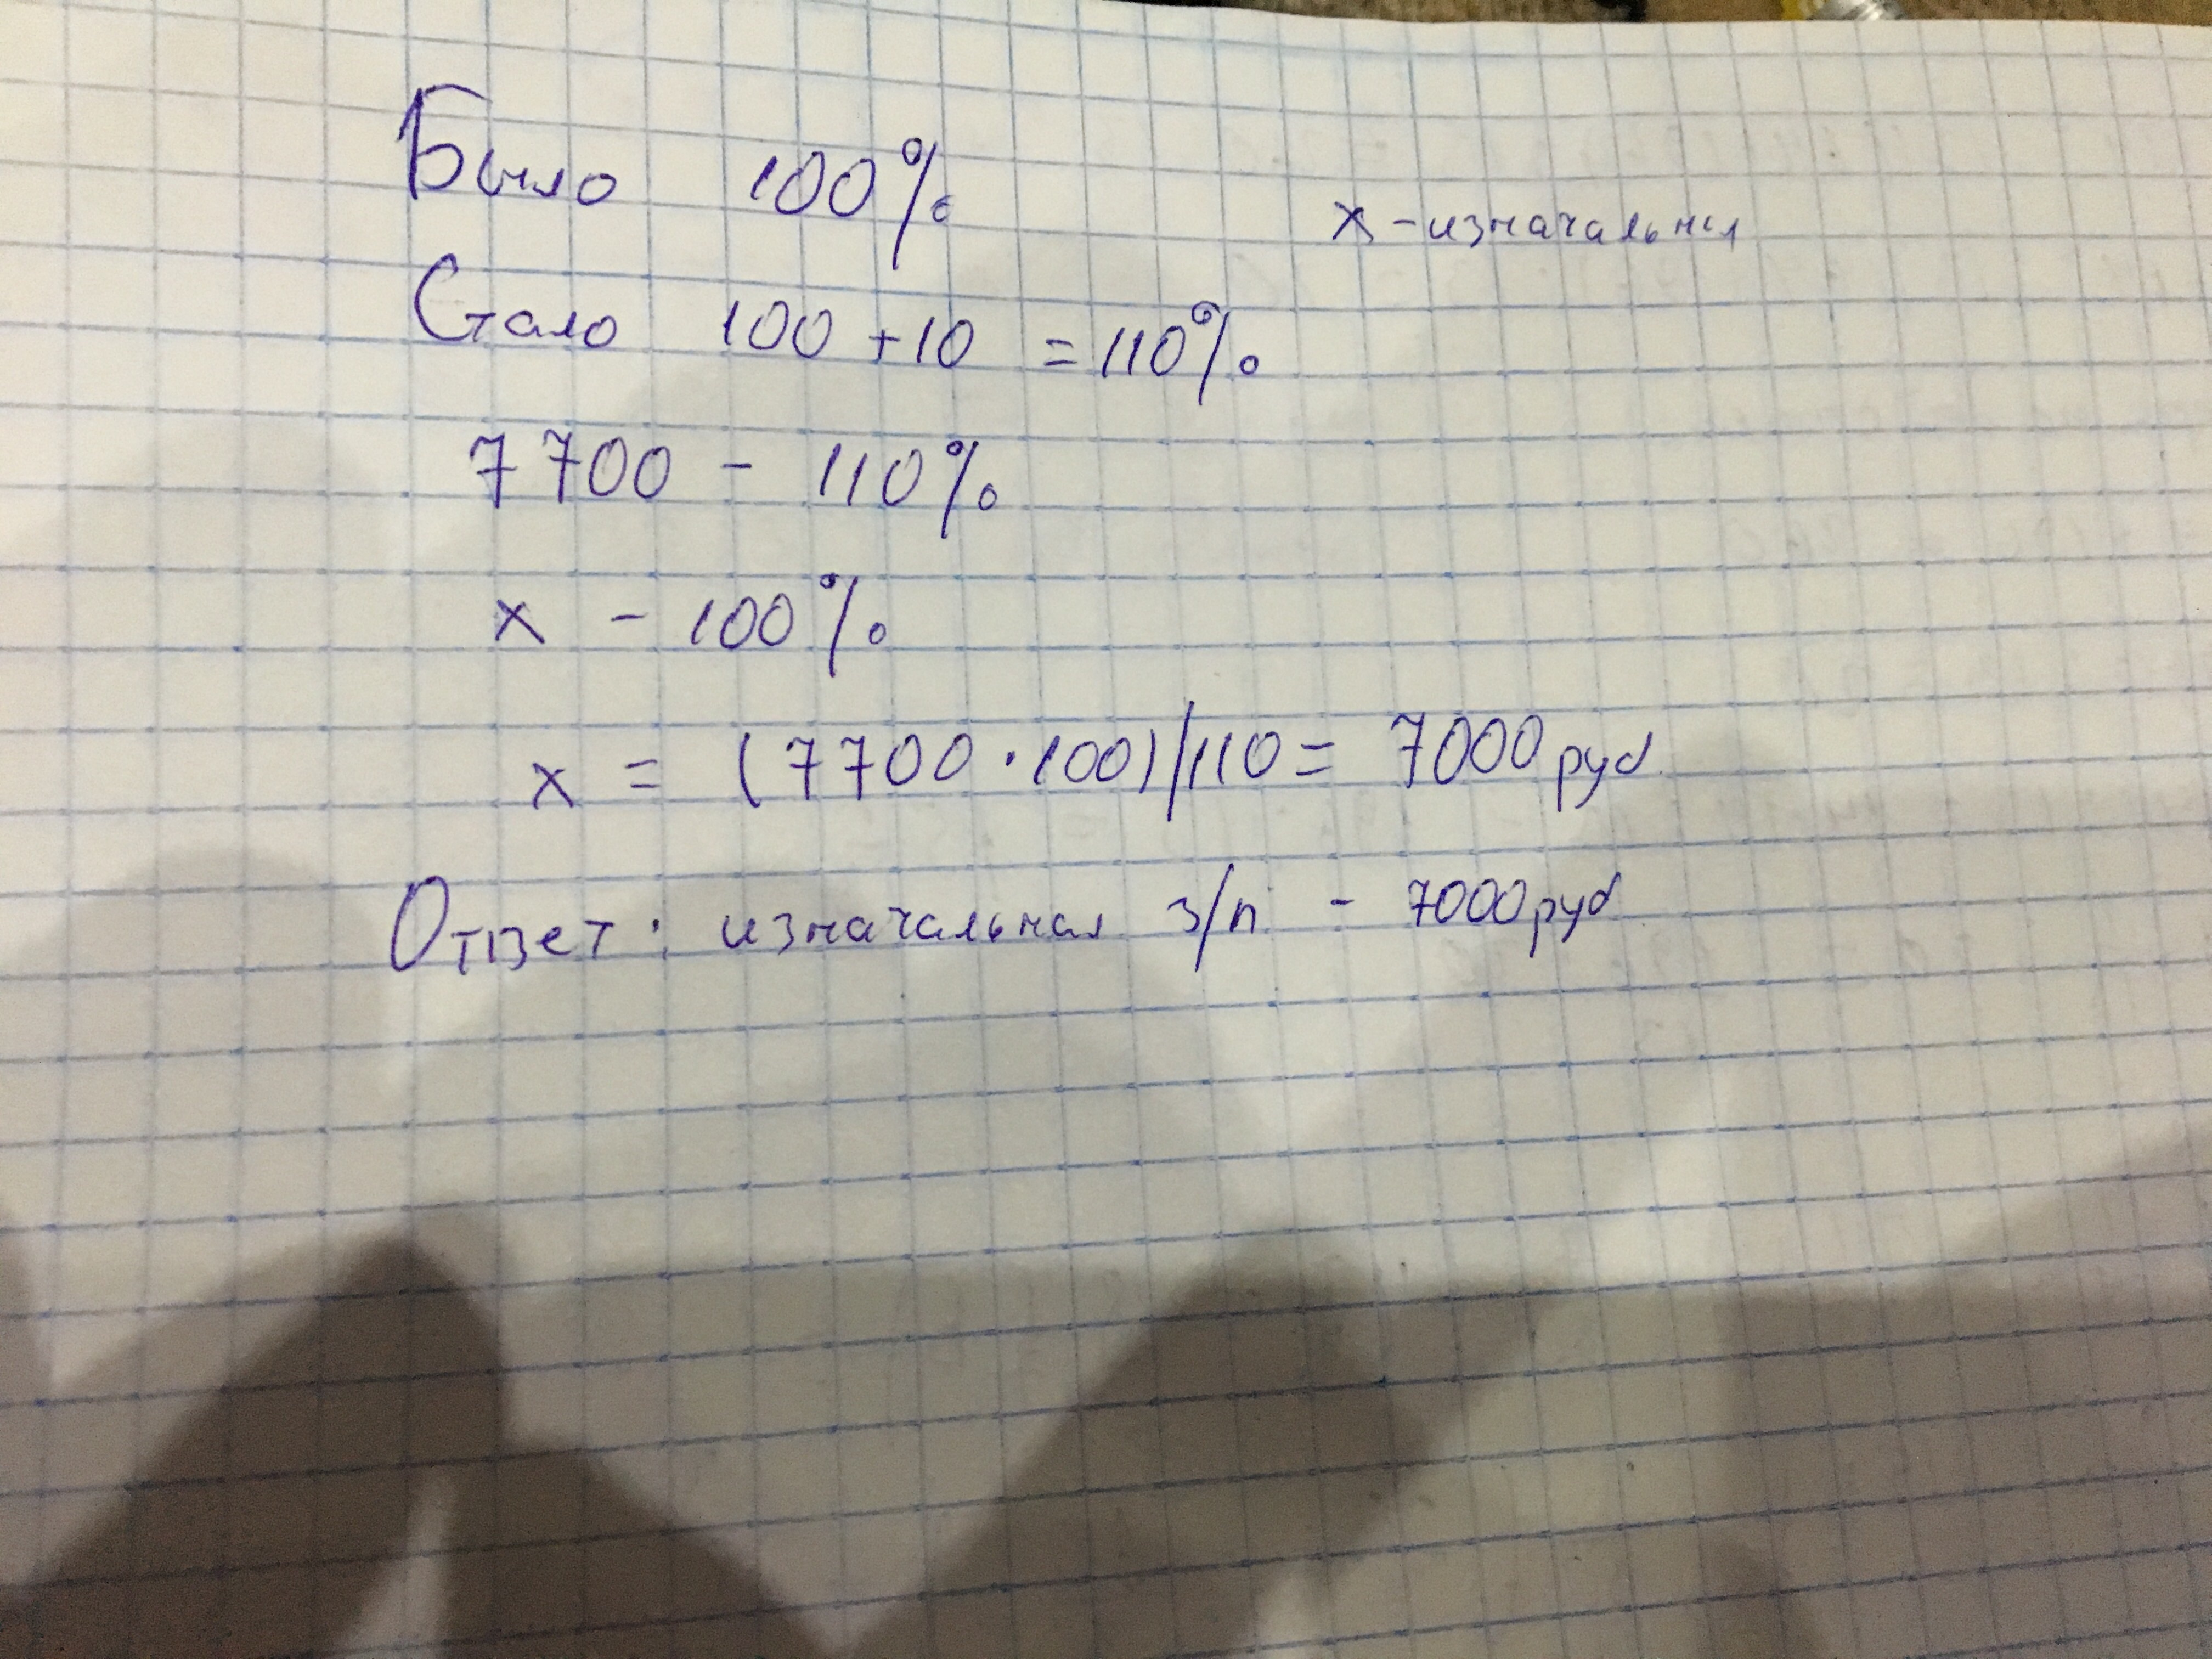 Было 100%
x - изначальная
Стало 100 + 10 = 110%
7700 - 110%
x - 100%
x = (7700 · 100)/110 = 7000 руб.
Ответ: изначальная з/п - 7000 руб